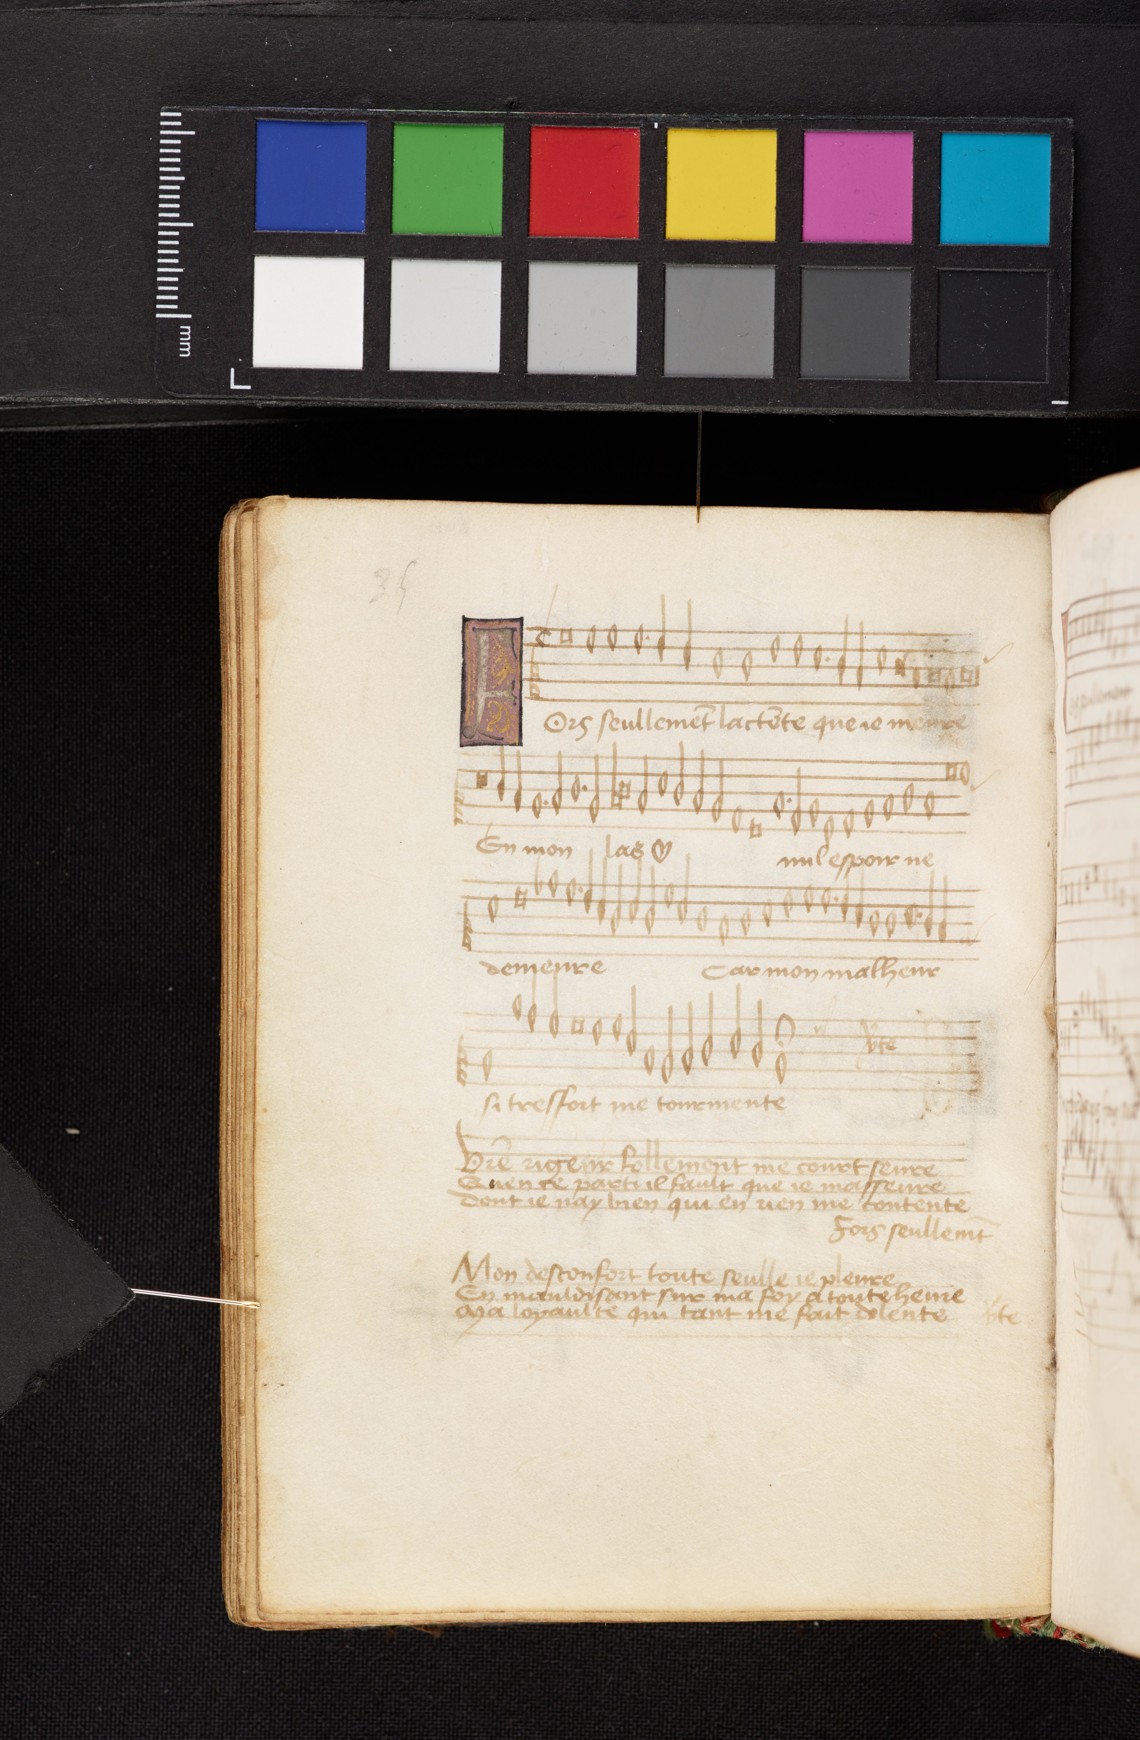 mm
35
Ors seullemēt lactēte que ie meure
En mon las nul espoir ne
demeure Car mon malheur
si tresfort me tourmente
vte
Vrē rigeur tellement me court seure
Quen ce parti il fault que ie masseure
Dont ie nay bien qui en rien me contente
Fors seullemt̄
Mon desconfort toute seulle ie pleure
En mauldisant sur ma foy a toute heure
Ma loyaulte qui tant me fait dolente vte